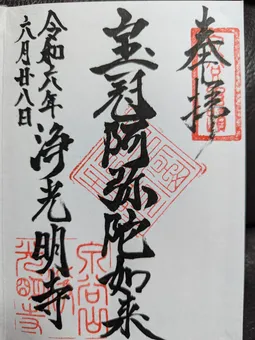 奉拝
宝冠阿弥陀如来
令和六年
六月廿八日
浄光明寺
泉谷山